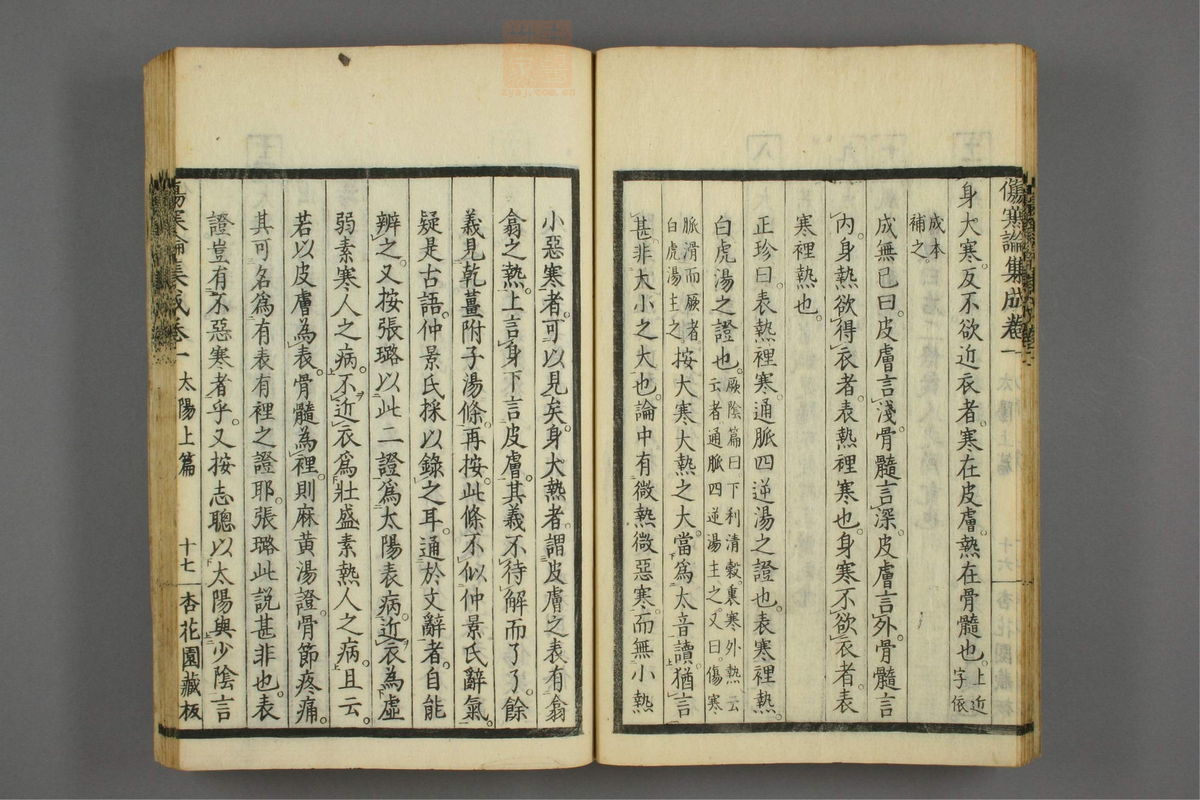 傷寒論集成卷一
身大寒反不欲近衣者寒在皮膚熱在骨髓也上近字依
成本補之
成無已曰皮膚言淺骨髓言深皮膚言外骨髓言
內身熱欲得衣者表熱裡寒也身寒不欲衣者表
寒裡熱也
正珍曰表熱裡寒通脈四逆湯之證也表寒裡熱
白虎湯之證也厥陰篇曰下利清穀裏寒外熱云云者通脈四逆湯主之又曰傷寒
脈滑而厥者白虎湯主之按大寒大熱之大當爲太音讀猶言
甚非大小之大也論中有微熱微惡寒而無小熱
小惡寒者可以見矣身大熱者謂皮膚之表有翕
翕之熱上言身下言皮膚其義不待解而了了餘
義見乾薑附子湯條再按此條不似仲景氏辭氣
疑是古語仲景氏採以錄之耳通於文辭者自能
辨之又按張璐以此二證爲太陽表病近衣為虛
弱素寒人之病不近衣爲壯盛素熱人之病且云
若以皮膚為表骨髓為裡則麻黃湯證骨節疼痛
其可名爲有表有裡之證耶張璐此説甚非也表
證豈有不惡寒者乎又按志聰以太陽與少陰言
傷寒論集成卷一 太陽上篇 十七 杏花園藏板
zysj.com.cn